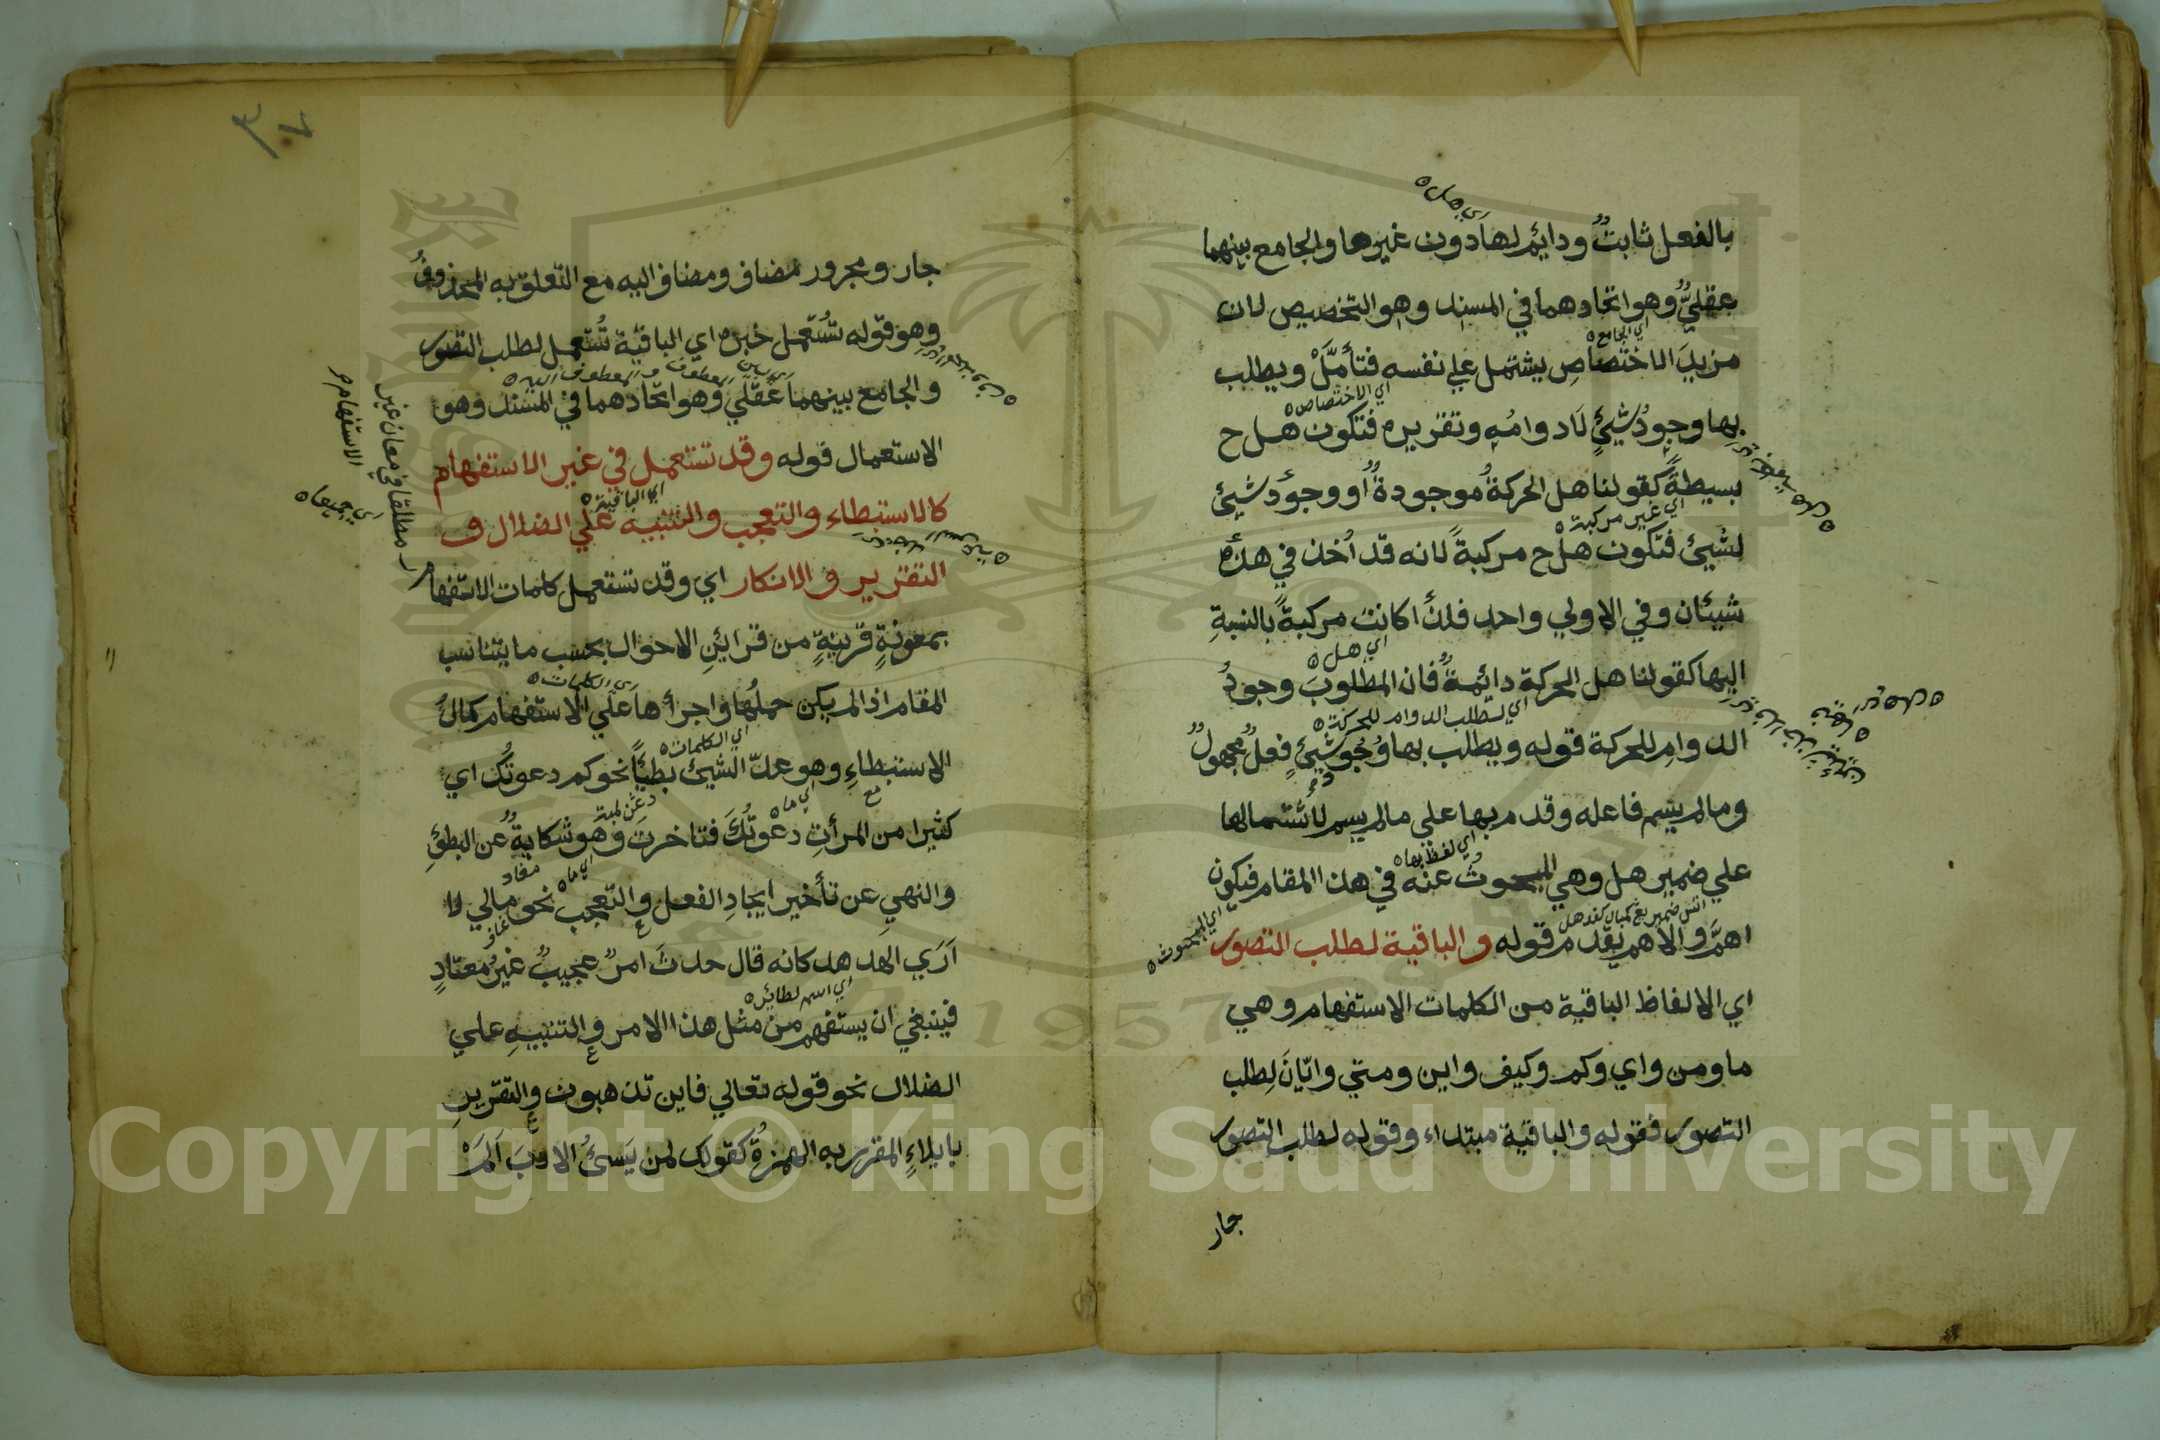 اي هل
بالفعل ثابتٌ ودايئم لها دون غيرها والجامع بينهما
عقليٌّ وهو اتحادهما في المسند وهو التخصيص لان
اي الجامع
مزيدَ الاختصاصِ يشتمل علي نفسه فتأمَّلْ ويطلب
اي الاختصاص
بها وجودُ شيئٍ لَا دوامُهِ وتقريره فتكون هل ح
بسيطةً كقولنا هل الحركةُ موجودةٌ أو وجودُ شيئ
اي غير مركبة
لشيئ فتكون هل ح مركبةً لانه قد اُخذ في هذه
شيئان وفي الاولي واحد فلذا كانت مركبةً بالنسبةِ
اي هل
اليها كقولنا هل الحركة دايئمةٌ فان المطلوبَ وجودُ
اي لطلب الدوام للحركة
الدوامِ للحركة قوله ويطلب بها وجود شيئٍ فعلٌ مجهولٌ
ومالم يسم فاعله وقدم بها علي مالم يسم لاشتمالها
اي لفظ بها
علي ضمير هل وهي المبحوثُ عنه في هذا المقام فيكون
اهمَّ والاهم يقدم قوله والباقية لطلب التصور
اي المبحوث
اي الالفاظ الباقية من الكلمات الاستفهام وهي
ما ومن واي وكم وكيف واين ومتي وايّانَ لِطلب
التصور فقوله والباقية مبتداء وقوله لطلب التصور
جار
٣٧
جار ومجرور مضاف ومضاف اليه مع التّعلق به المحذوفُ
وهو قوله تُستعمل خبره اي الباقية تُستعمل لطلب التصور
اي بين المعطوف والمعطوف اليه
والجامع بينهما عَقليّ وهو اتّحادهما في المسند وهو
الاستعمال قوله وقد تستعمل في غير الاستفهام
اي الباقية
كالاستبطاء والتعجب والتنبيه علي الضلال و
التقرير والانكار اي وقد تستعمل كلمات الاستفهام
مطلقا في معان غير
الاستفهام
اي جميعا
بمعونةِ قرينةٍ من قرايئنِ الاحوال بحسب ما يتناسب
اي الكلمات
المقام اذا لم يكن حملُها واجرأها علي الاستفهام كمالُ
اي الكلمات
الاستبطاءِ وهو عدّ الشيئ بطيئًا نحو كم دعوتُك اي
كثيرا من المرأتِ دعوتُكَ فتاخرتَ وهو شكايةٌ عن البطئِ
والنهيِ عن تأخير ايجادِ الفعل والتّعجب نحو مالي لا
اَرَي الهدهد كانه قال حدثَ امرٌ عجيبٌ غيرُ معتادٍ
اي اسم لطائر
فينبغي ان يستفهم من مثل هذا الامر والتنبيهِ علي
الضلال نحو قوله تعالي فاين تذهبون والتقريرِ
بايلاءِ المقرر به الهمزةَ كقولك لمن يَسئُ الادبَ اَلَمْ
Copyright © King Saud University
1957